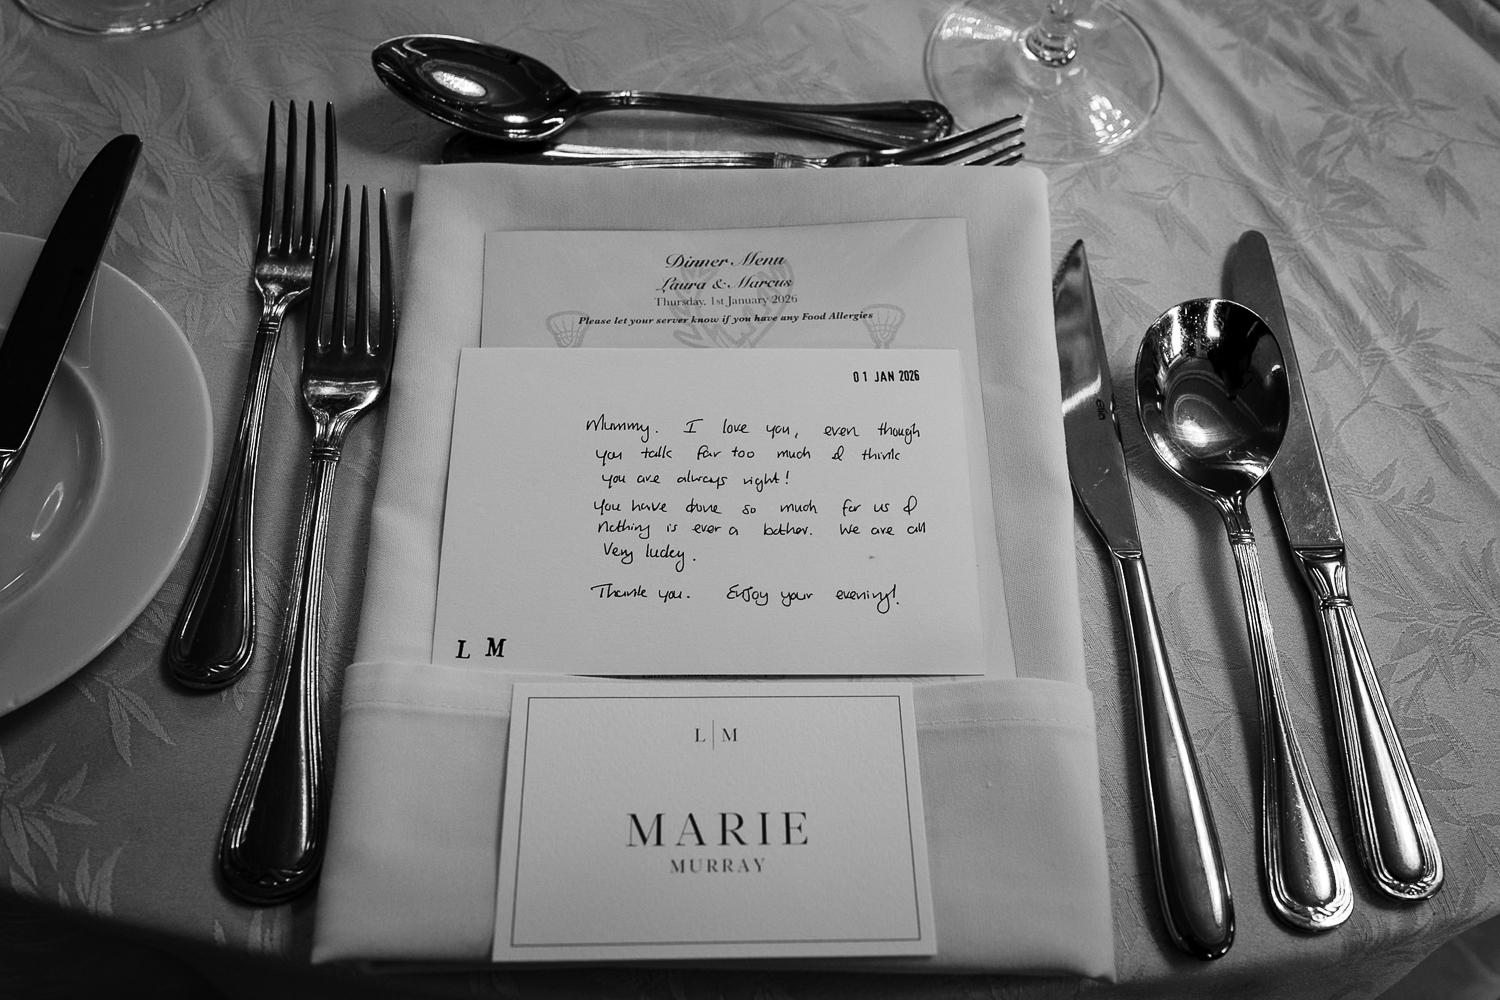 Dinner Menu
Laura & Marcus
Thursday, 1st January 2026
Please let your server know if you have any Food Allergies
01 JAN 2026
Mummy. I love you, even though
you talk far too much & think
you are always right!
You have done so much for us &
nothing is ever a bother. We are all
very lucky.
Thank you. Enjoy your evening!
L M
L | M
MARIE
MURRAY